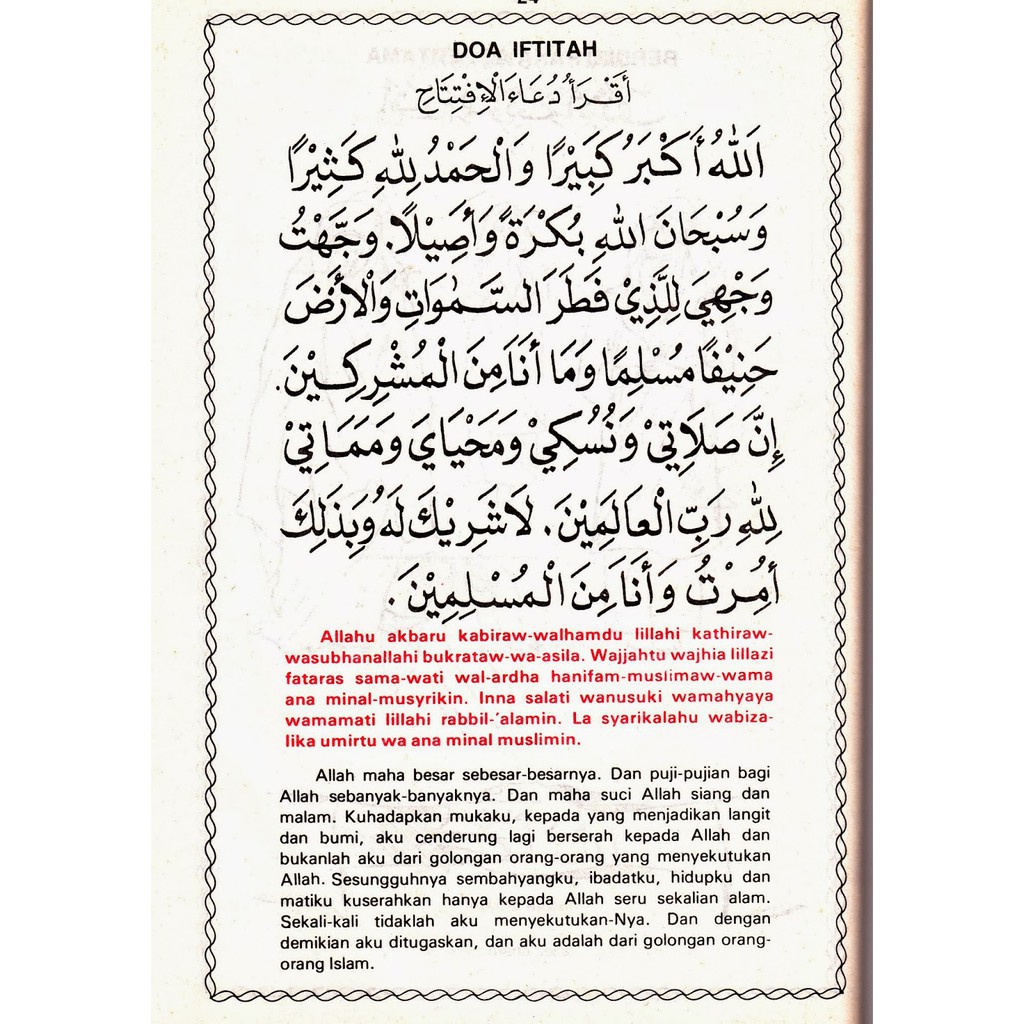 24
DOA IFTITAH
أَقْرَأُ دُعَاءَ الْإِفْتِتَاحِ
اَللهُ أَكْبَرُ كَبِيْرًا وَالْحَمْدُ لِلّٰهِ كَثِيْرًا
وَسُبْحَانَ اللهِ بُكْرَةً وَأَصِيْلًا. وَجَّهْتُ
وَجْهِيَ لِلَّذِيْ فَطَرَ السَّمٰوَاتِ وَالْأَرْضَ
حَنِيْفًا مُسْلِمًا وَمَا أَنَا مِنَ الْمُشْرِكِيْنَ.
إِنَّ صَلَاتِيْ وَنُسُكِيْ وَمَحْيَايَ وَمَمَاتِيْ
لِلّٰهِ رَبِّ الْعَالَمِيْنَ. لَا شَرِيْكَ لَهُ وَبِذَلِكَ
أُمِرْتُ وَأَنَا مِنَ الْمُسْلِمِيْنَ.
Allahu akbaru kabiraw-walhamdu lillahi kathiraw-
wasubhanallahi bukrataw-wa-asila. Wajjahtu wajhia lillazi
fataras sama-wati wal-ardha hanifam-muslimaw-wama
ana minal-musyrikin. Inna salati wanusuki wamahyaya
wamamati lillahi rabbil-'alamin. La syarikalahu wabiza-
lika umirtu wa ana minal muslimin.
Allah maha besar sebesar-besarnya. Dan puji-pujian bagi
Allah sebanyak-banyaknya. Dan maha suci Allah siang dan
malam. Kuhadapkan mukaku, kepada yang menjadikan langit
dan bumi, aku cenderung lagi berserah kepada Allah dan
bukanlah aku dari golongan orang-orang yang menyekutukan
Allah. Sesungguhnya sembahyangku, ibadatku, hidupku dan
matiku kuserahkan hanya kepada Allah seru sekalian alam.
Sekali-kali tidaklah aku menyekutukan-Nya. Dan dengan
demikian aku ditugaskan, dan aku adalah dari golongan orang-
orang Islam.